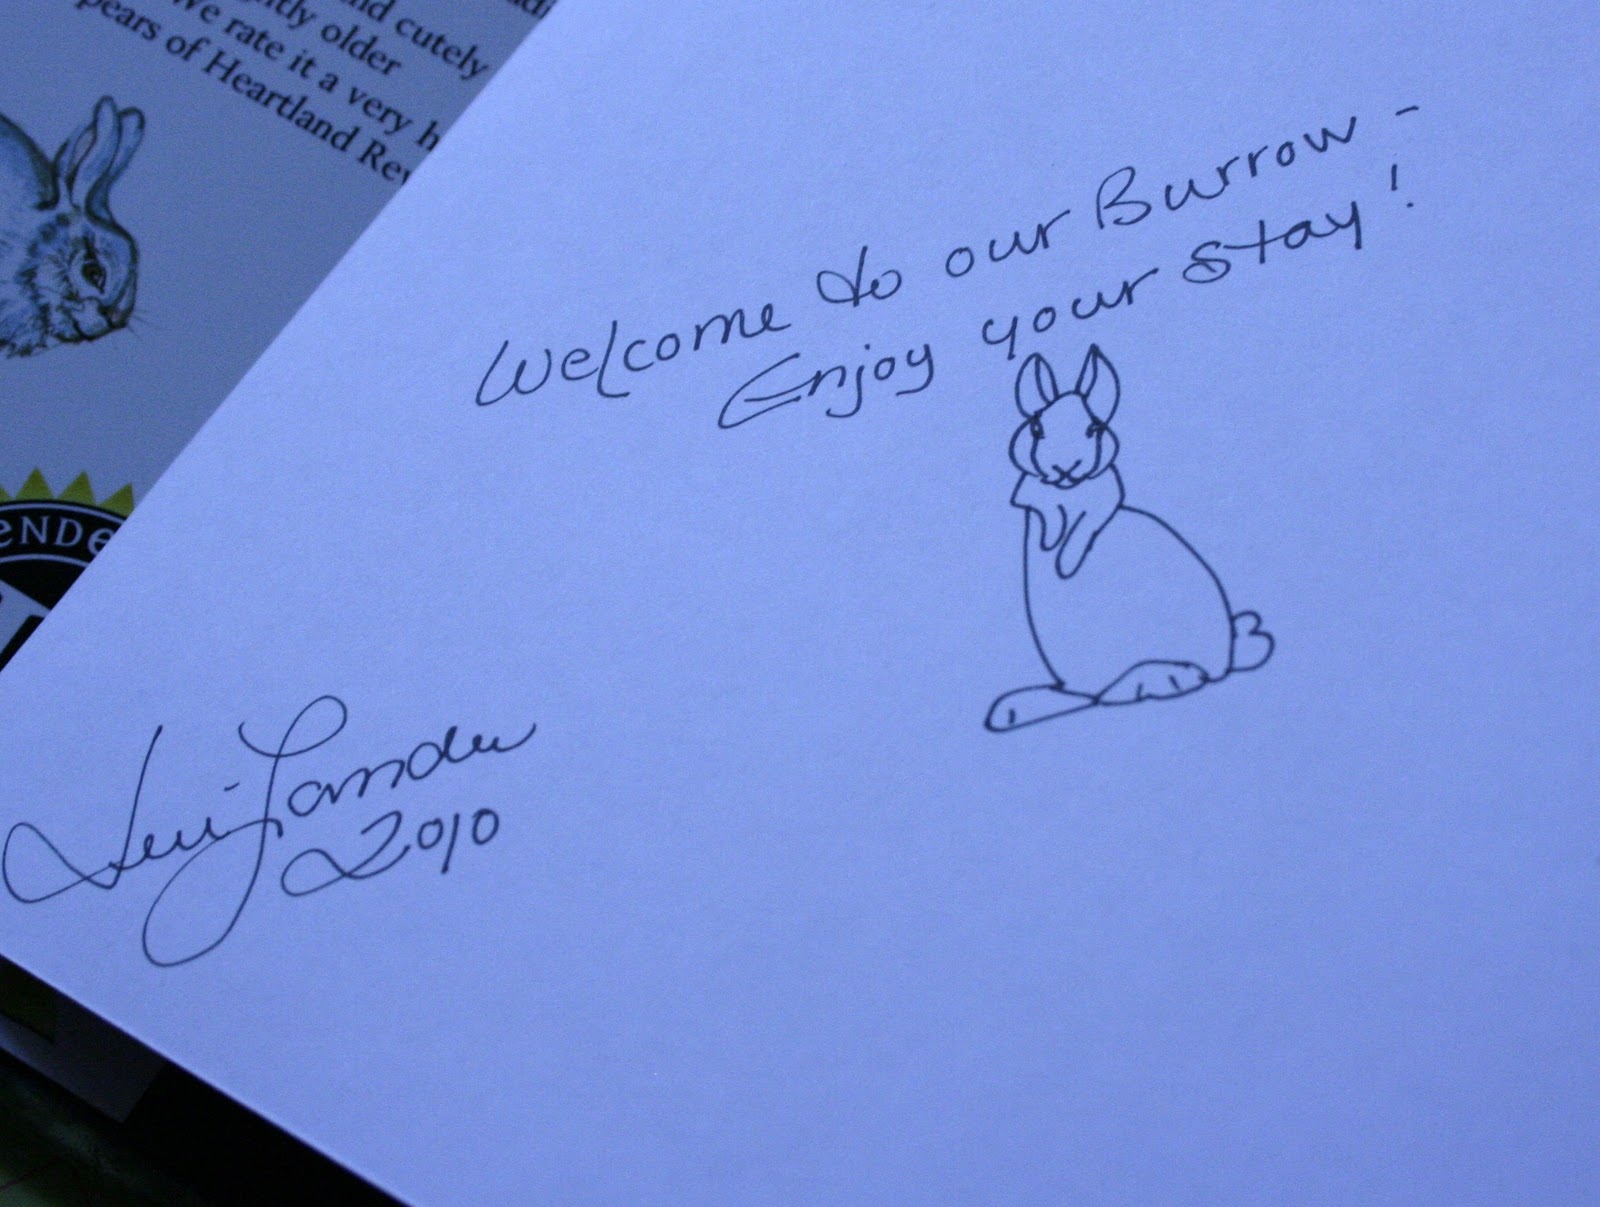 nd cutely
ntly older
We rate it a very h
pears of Heartland Rev
ENDE
Welcome to our Burrow -
Enjoy your stay!
2010